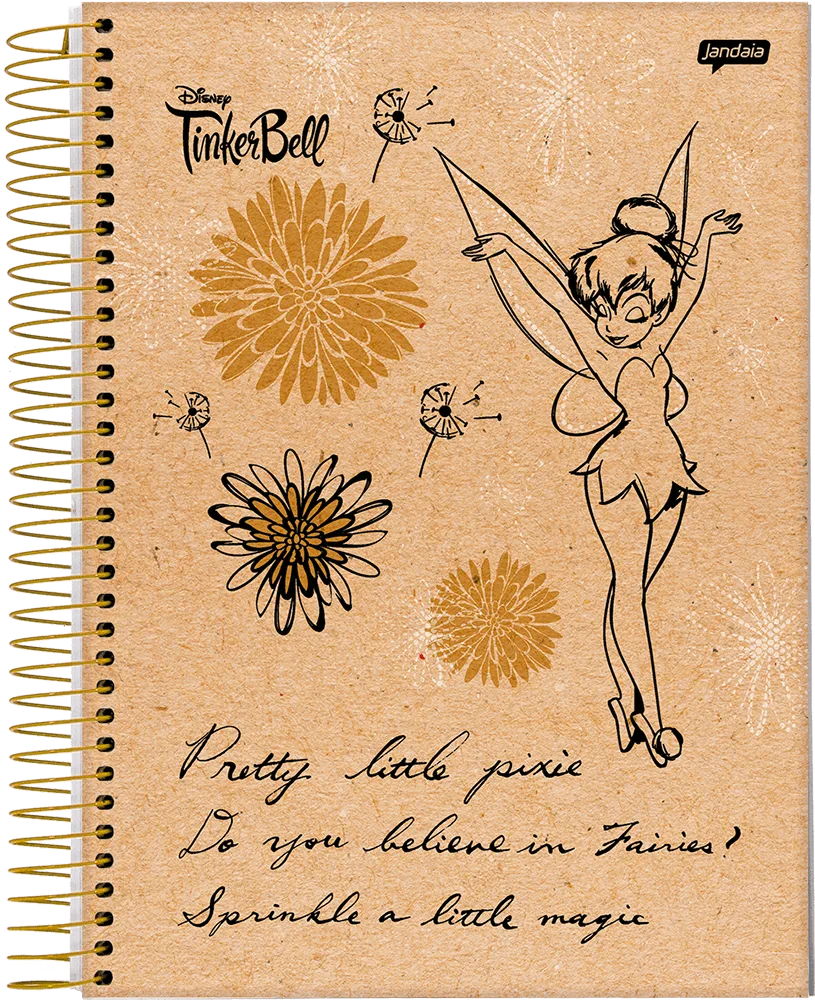 jandaia
Disney
TinkerBell
Pretty little pixie
Do you believe in Fairies?
Sprinkle a little magic